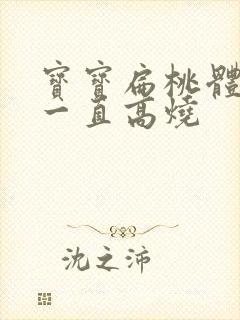 寶寶扁桃體
一直高燒
沈之沛